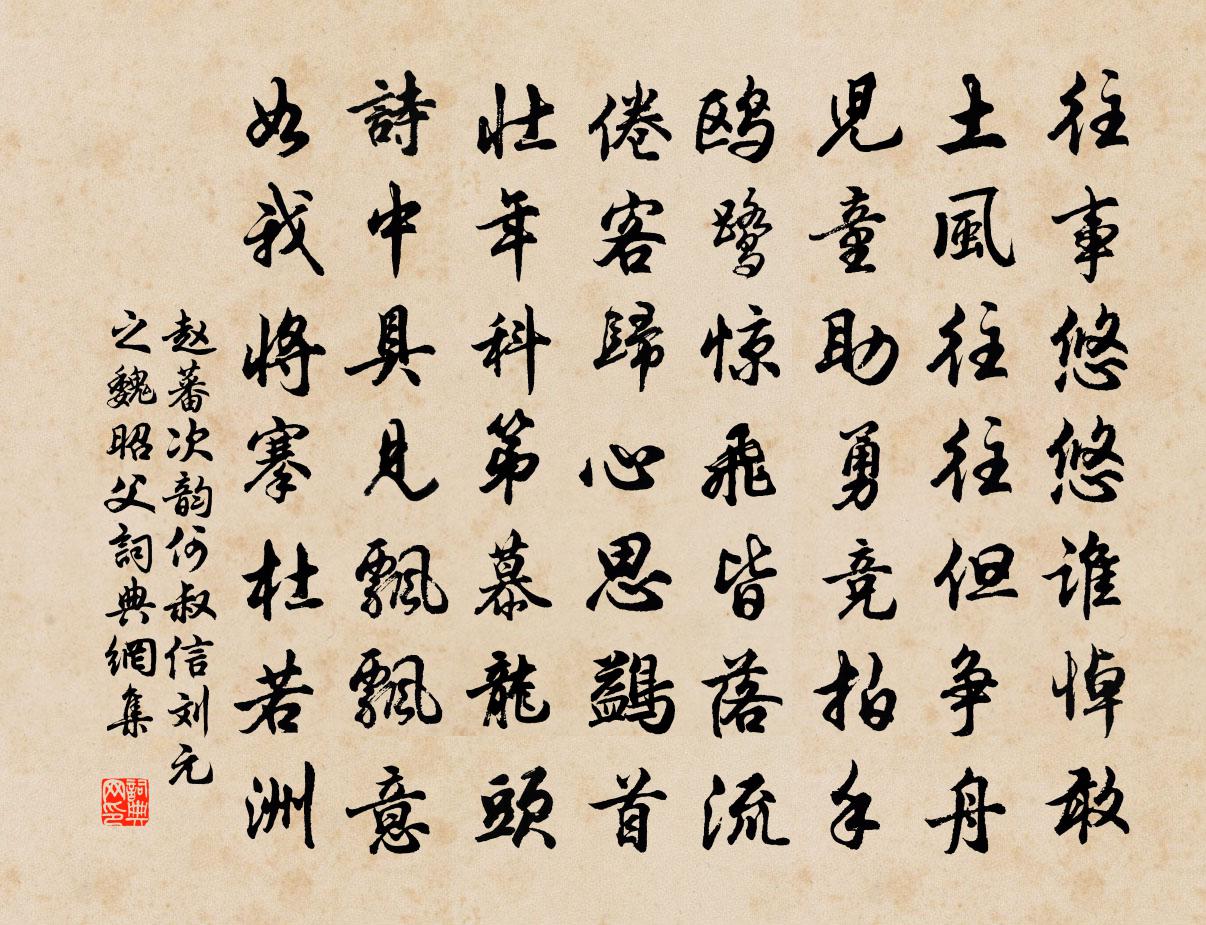 往事悠悠誰悼敢
土風往往但爭舟
兒童助勇竞拍手
鸥鷺惊飛皆落流
倦客歸心思鷁首
壮年科第慕龍頭
詩中具見飄飄意
如我將搴杜若洲
赵蕃次韵何叔信刘元
之魏昭父詞典網集
詞典
网印